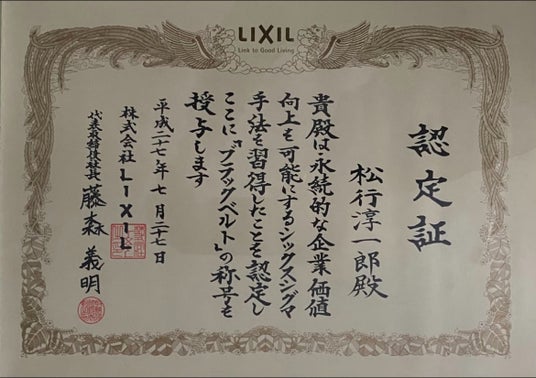 LIXIL
Link to Good Living
認定証
松行淳一郎殿
貴殿は永続的な企業価値
向上を可能にするシックスシグマ
手法を習得したことを認定し
ここに「ブラックベルト」の称号を
授与します
平成二十七年七月二十七日
株式会社LIXIL
代表取締役社長 藤森義明